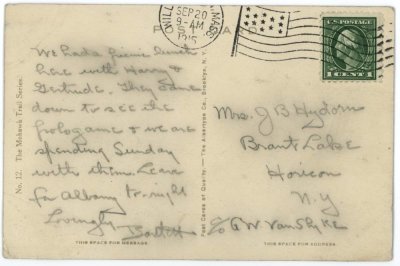 SEP 20
9-AM
1915
MASS.
U.S. POSTAGE
1 CENT 1
We had a picnic lunch
here with Harry &
Gertrude. They came
down to see the
polo game & we are
spending Sunday
with them. Leave
for Albany to-night
Lovingly
THIS SPACE FOR MESSAGE.
No. 12. The Mohawk Trail Series.
Post Cards of Quality. — The Albertype Co., Brooklyn, N. Y.
Mrs. J B Hydorn
Brant Lake
Horicon
N. Y.
c/o G W Van Slyke
THIS SPACE FOR ADDRESS.